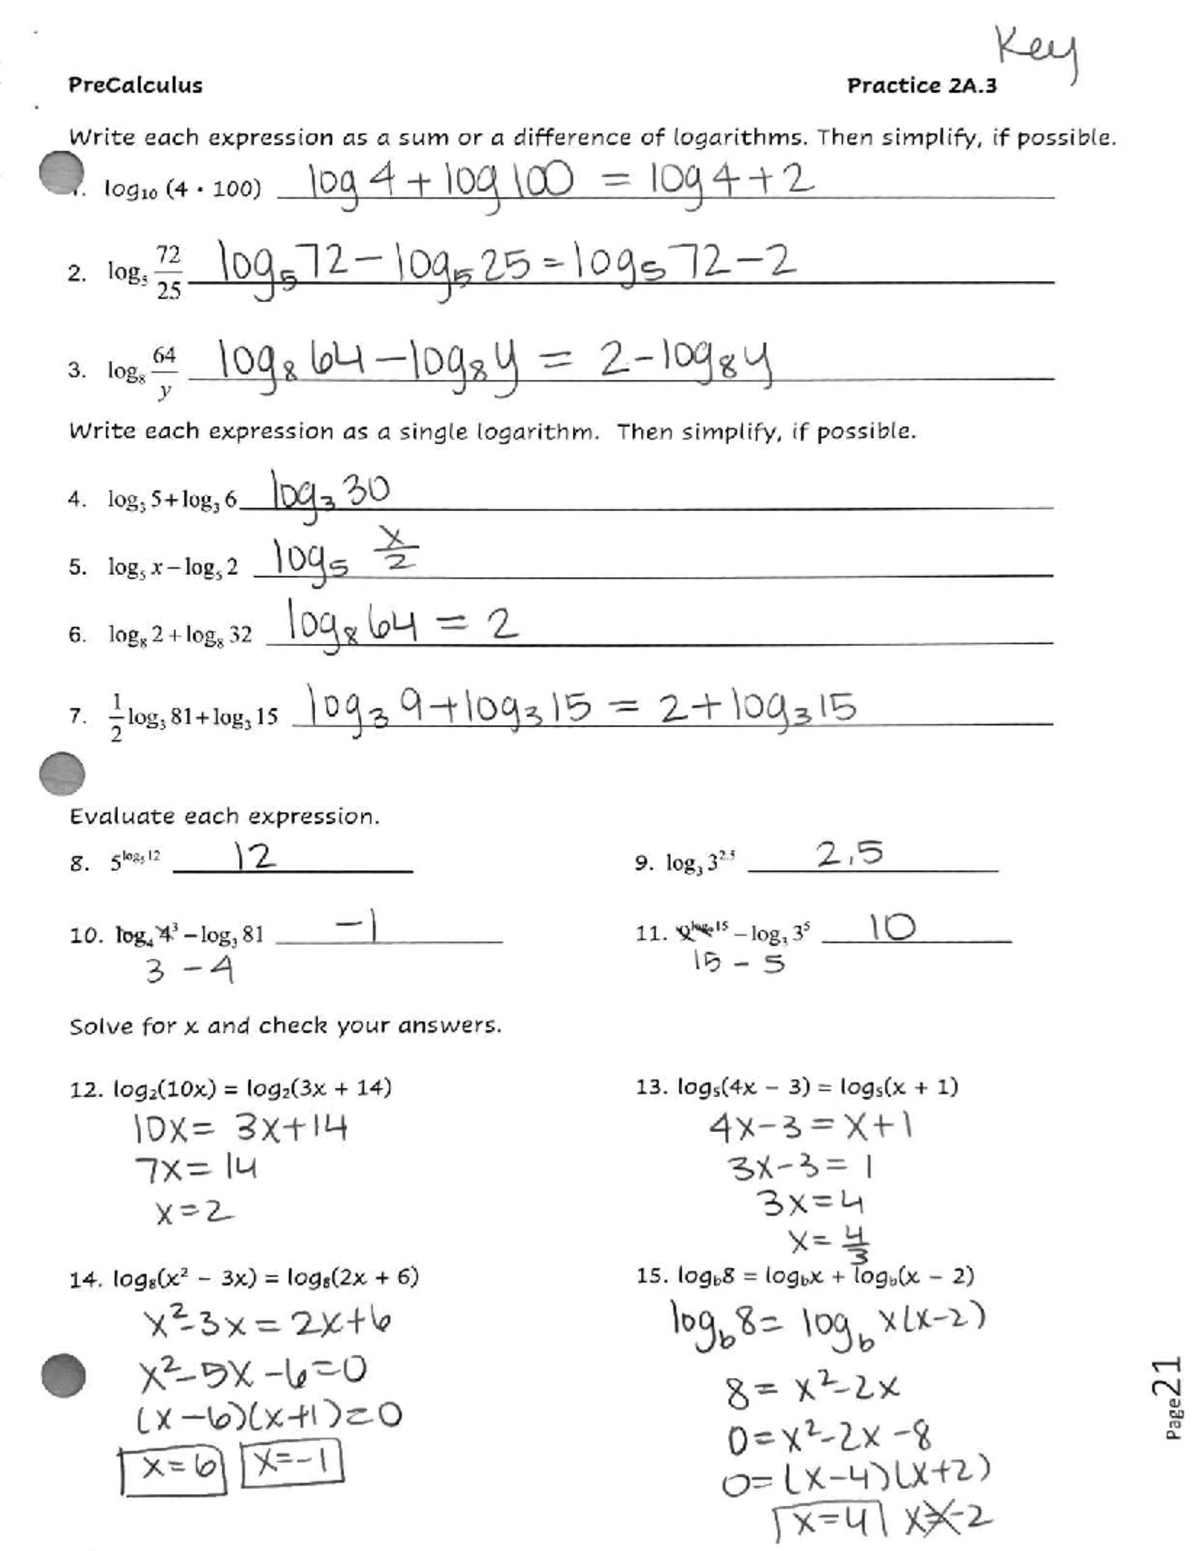 Key
PreCalculus Practice 2A.3
Write each expression as a sum or a difference of logarithms. Then simplify, if possible.
1. log₁₀ (4 · 100) log 4 + log 100 = log 4 + 2
2. log₅ 72/25 log₅72 − log₅25 = log₅72 − 2
3. log₈ 64/y log₈64 − log₈y = 2 − log₈y
Write each expression as a single logarithm. Then simplify, if possible.
4. log₃ 5 + log₃ 6 log₃30
5. log₅ x − log₅ 2 log₅ x/2
6. log₈ 2 + log₈ 32 log₈64 = 2
7. 1/2 log₃ 81 + log₃ 15 log₃9 + log₃15 = 2 + log₃15
Evaluate each expression.
8. 5^log₅ 12 12
9. log₃ 3^2.5 2.5
10. log₄ 4³ − log₃ 81 −1
3 − 4
11. 15 − log₃ 3⁵ 10
15 − 5
Solve for x and check your answers.
12. log₂(10x) = log₂(3x + 14)
10x = 3x+14
7x = 14
x = 2
13. log₅(4x − 3) = log₅(x + 1)
4x−3 = x+1
3x−3 = 1
3x = 4
x = 4/3
14. log₈(x² − 3x) = log₈(2x + 6)
x²−3x = 2x+6
x²−5x−6=0
(x−6)(x+1)=0
x=6 x=−1
15. log_b8 = log_bx + log_b(x − 2)
log_b 8 = log_b x(x−2)
8 = x²−2x
0=x²−2x−8
0=(x−4)(x+2)
x=4 x=−2
Page21